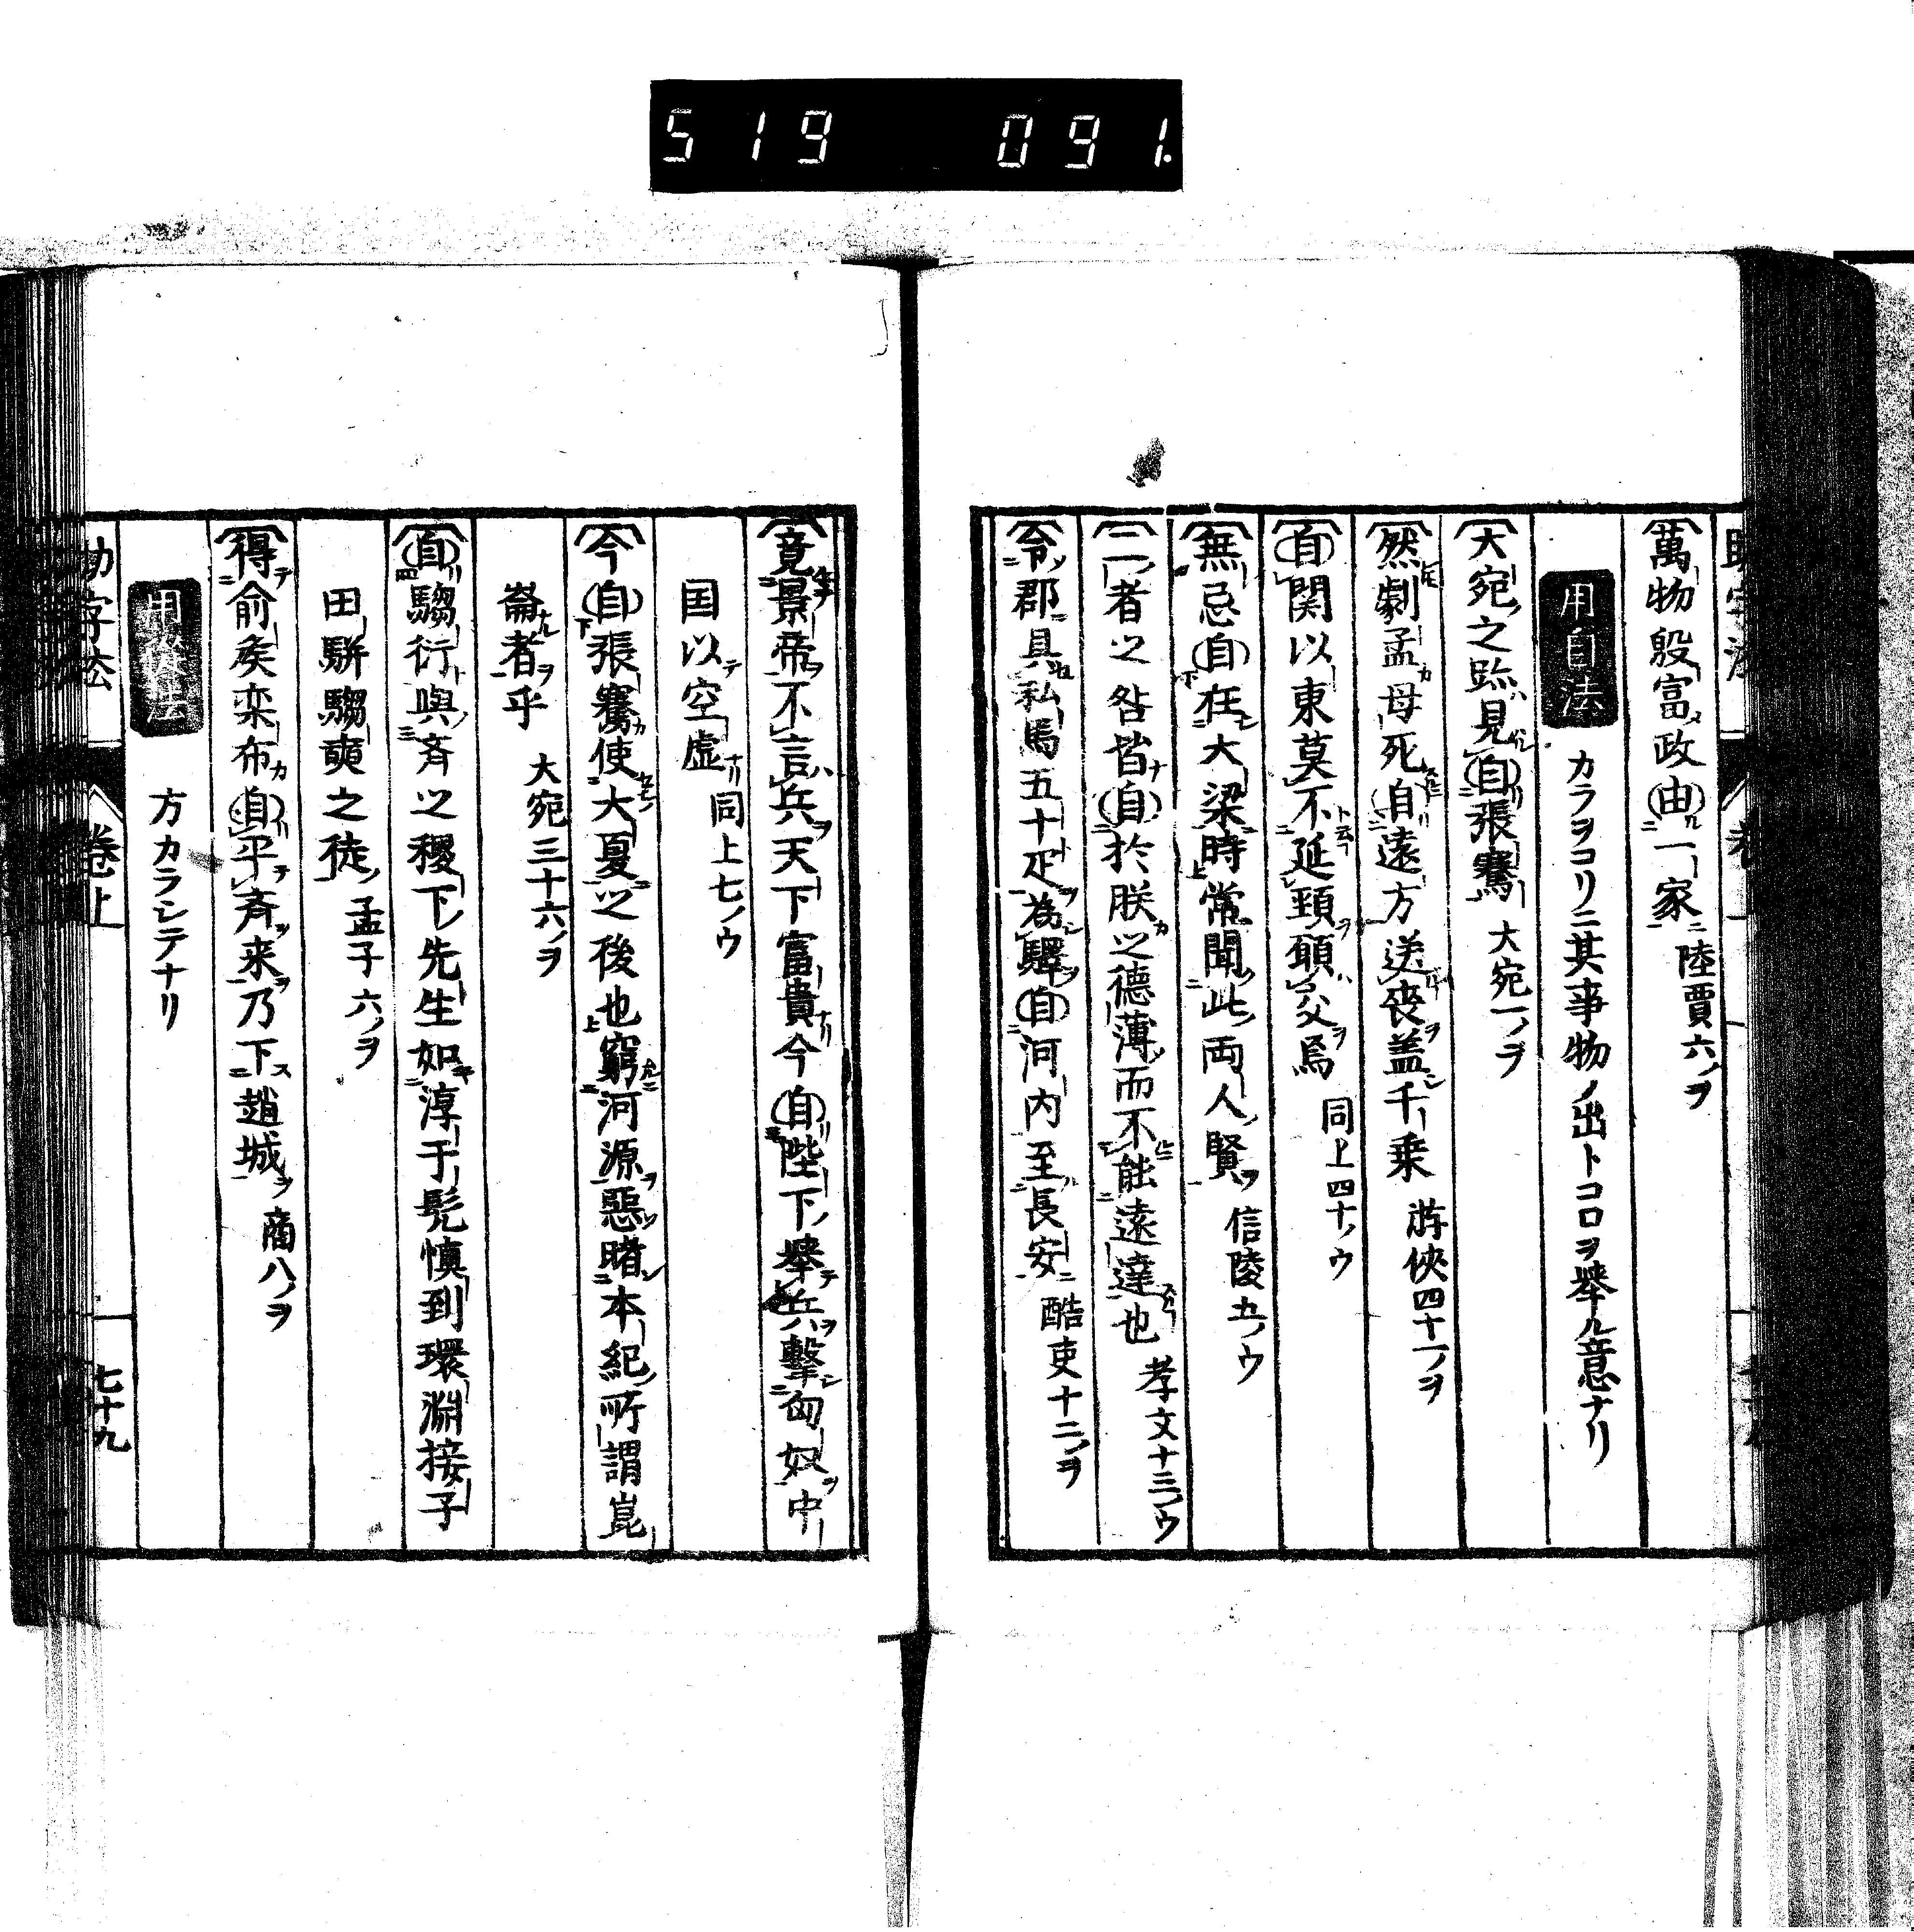 519 091.
萬物殷富政由一家 陸賈六ノヲ
用自法 カラヲコリニ其事物ノ出トコロヲ挙ル意ナリ
大宛之跡見自張騫 大宛一ノヲ
然劇孟母死自遠方送喪蓋千乗 游俠四十一ノヲ
自関以東莫不延頸願交焉 同上四十ノウ
無忌自在大梁時常聞此両人賢 信陵五ノウ
二者之咎皆自於朕之德薄而不能遠達也 孝文十三ノウ
令郡具私馬五十疋為驛自河内至長安 酷吏十二ノヲ
竟景帝不言兵天下富貴今自陛下挙兵擊匈奴中
国以空虚 同上七ノウ
今自張騫使大夏之後也窮河源惡睹本紀所謂崑
崙者乎 大宛三十六ノヲ
自騶衍與斉之稷下先生如淳于髡慎到環淵接子
田駢騶奭之徒 孟子六ノヲ
得俞矦栾布自平斉来乃下趙城 商八ノヲ
方カラシテナリ
助字法 卷上 七十九